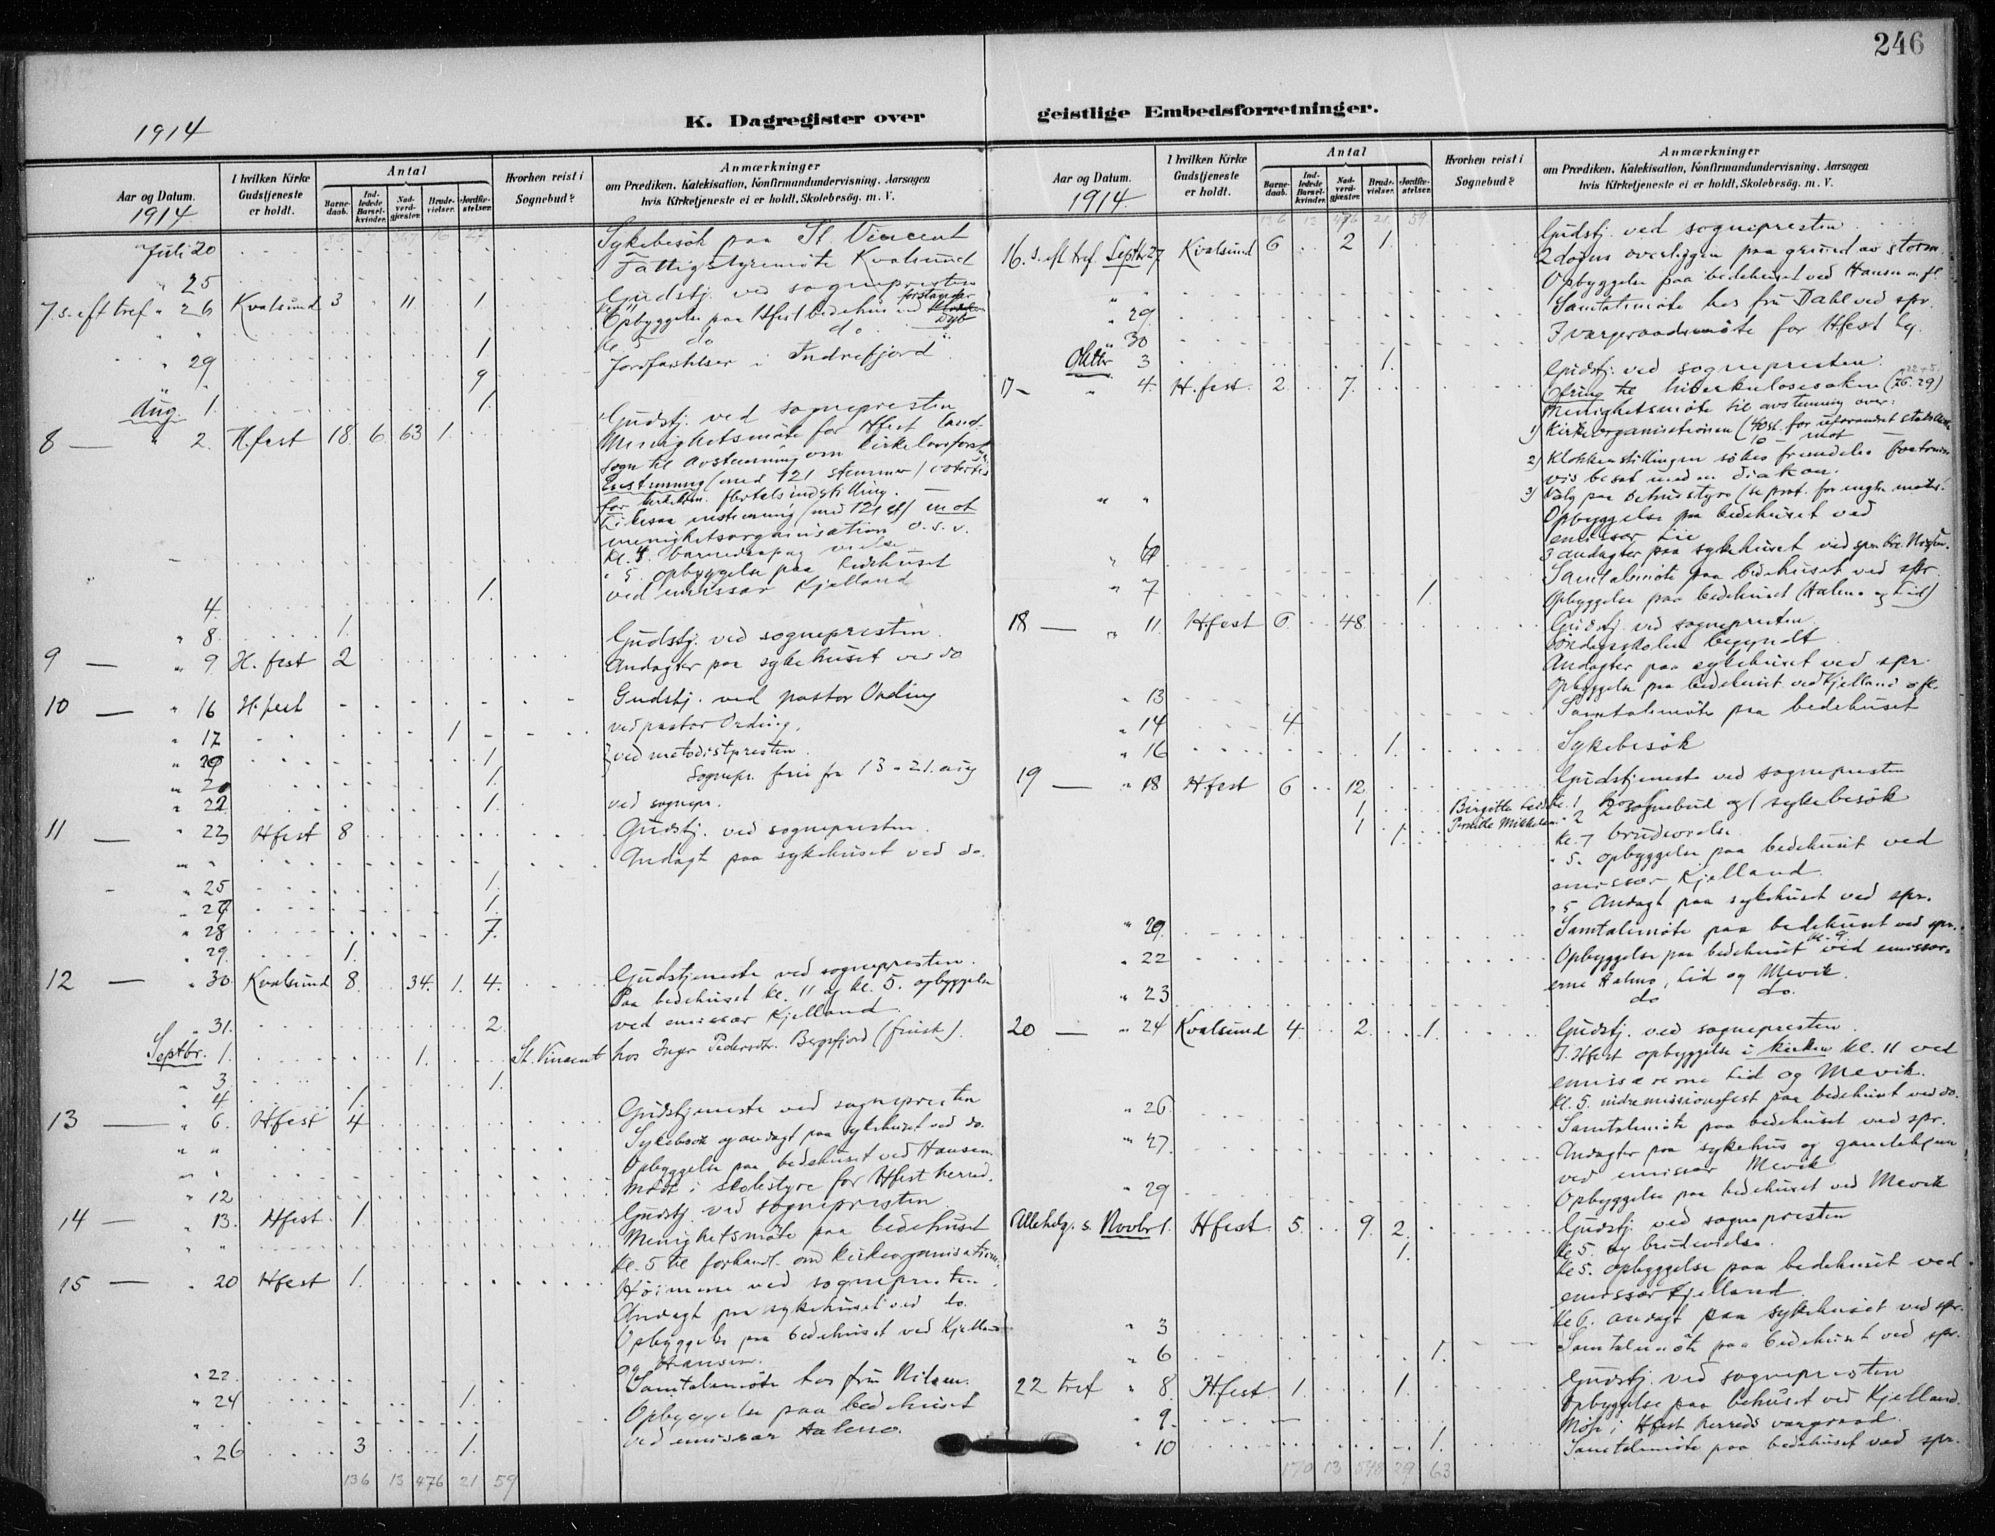 246
1914
K. Dagregister over
geistlige Embedsforretninger.
Aar og Datum.
1914
I hvilken Kirke Gudstjeneste er holdt.
Antal
Barnedaab.
Indledede Barselkvinder.
Nadverdgjæster.
Brudevielser.
Jordfæstelser.
Hvorhen reist i Sognebud?
Anmærkninger
om Prædiken, Katekisation, Konfirmandundervisning, Aarsagen
hvis Kirketjeneste ei er holdt, Skolebesøg. m. V.
Juli 20 Sykebesök paa St. Vincent
" 25 Fattigstyremöte Kvalsund
7. s. eft tref " 26 Kvalsund 3 11 1. Gudstj. ved sognepresten
Opbyggelse paa Hfest bedehus ved forstander Dyb
do do
" 29 1 Jordfæstelser i Indrefjord
" 9
Aug. 1. 1.
8 — " 2. H.fest 18 6 63 1. Gudstj. ved sognepresten
Menighetsmöte for Hfest land-
sogn til avstemning om kirkelovsforsl.
Enstemmig (med 121 stemmer) votertes
for flertalsindstilling.
Likesaa enstemmig (med 121 st) mot
menighetsorganisation o.s.v.
Kl. 4 barnedaap vielse
" 5. opbyggelse paa bedehuset
ved emissær Kjelland
4. 1.
" 8. 1.
9 — " 9 H.fest 2 Gudstj. ved sognepresten.
Andagter paa sykehuset ved do
10 — " 16 H.fest Gudstj. ved pastor Ording
" 17 1 ved pastor Ording.
" 19 1 ved metodistpresten
" 20 1. Sognepr. ferie fra 13 - 21. aug
" 22 1. ved sognepr.
11 — " 23 Hfest 8 Gudstj. ved sognepresten.
" " Andagt paa sykehuset ved do.
" 25 1.
" 27 1.
" 28 7.
" 29. 1.
12 — " 30 Kvalsund 8. 34. 1. 4. Gudstjeneste ved sognepresten.
Paa bedehuset kl. 11 og kl. 5. opbyggelse
ved emissær Kjelland
" 31. 2.
Septbr. 1. 1. St. Vincent hos Inger Pedersdtr. Bergsfjord (frisk).
" 3 1.
" 4 1.
13 — " 6. Hfest 4 Gudstjeneste ved sognepresten
" " Sykebesök og andagt paa sykehuset ved do.
" " Opbyggelse paa bedehuset ved Hansen.
" 12 Möte i skolestyre for Hfest herred.
14 — " 13. Hfest 1. Gudstj. ved sognepresten
" " Menighetsmöte paa bedehuset
kl. 5 til forhandl. om kirkeorganisation.
15 — " 20 Hfest 1. Höimesse ved sognepresten.
Andagt paa sykehuset ved do.
Opbyggelse paa bedehuset ved Kjelland
og Hansen.
" 22. Samtalemöte hos fru Nilsen.
" 24 1. Opbyggelse paa bedehuset
" ved emissær Aalmo.
" 26 3 1.
136 13 476 21 59
Aar og Datum.
1914
I hvilken Kirke Gudstjeneste er holdt.
Antal
Barnedaab.
Indledede Barselkvinder.
Nadverdgjæster.
Brudevielser.
Jordfæstelser.
Hvorhen reist i Sognebud?
Anmærkninger
om Prædiken, Katekisation, Konfirmandundervisning, Aarsagen
hvis Kirketjeneste ei er holdt, Skolebesøg. m. V.
136 13 476 21 59
16. s. eft tref. Septbr 27 Kvalsund 6 2 1. Gudstj. ved sognepresten
2 dögns overliggen paa grund av storm
" " Opbyggelse paa bedehuset ved Hansen m. fl.
" 29. Samtalemöte hos fru Dahl ved spr.
" 30 I vargeraadsmöte for Hfest by.
Oktbr 3 1.
17 — " 4. H.fest. 2 7. Gudstj. ved sognepresten.
Ofring til tuberkulosesaken
Menighetsmöte til avstemning over:
1) Kirkeorganisationen (40 st. for uforandret
10 — mot
2) Klokkerstillingen sökes fremdeles
vis besat med en diakon.
3) Valg paa
" " Opbyggelse paa bedehuset ved
emissær Lie
" 6 3 andagter paa sykehuset ved spr.
Samtalemöte paa bedehuset ved spr.
" 7 1. Opbyggelse paa bedehuset (Halmo og Lid)
18 — " 11. Hfest 6 48. Gudstj. ved sognepresten
Söndagsskolen begyndt
Andagter paa sykehuset ved spr.
Opbyggelse paa bedehuset ved Kjelland o fl.
" 13 Samtalemöte paa bedehuset
" 14 4
" 16 1. Sykebesök
19 — " 18 Hfest 6 12. Gudstjeneste ved sognepresten
1 Birgitte kl. 1 sognebud og 1 sykebesök
1 1. Pernille Mikkelsen " 2
kl. 7 brudevielse.
" 5. opbyggelse paa bedehuset ved
emissær Kjelland.
" 5 Andagt paa sykehuset ved spr.
" 20. Samtalemöte paa bedehuset ved spr.
" 22 Opbyggelse paa bedehuset ved emissær-
erne Halmo, Lid og Mevik.
" 23 do do.
20 — " 24 Kvalsund 4 2. 1. Gudstj. ved sognepresten.
I Hfest opbyggelse i kirken kl. 11 ved
emissærerne Lid og Mevik.
kl. 5. indremissionsfest paa bedehuset ved do.
" 26 Samtalemöte paa bedehuset ved spr.
" 27. Andagter paa sykehus og gamlehjem
ved emissær Mevik
" 29 Opbyggelse paa bedehuset ved Mevik
Allehelg. s. Novbr 1. Hfest. 5. 9. 2. Gudstj. ved sognepresten
1. kl 5. og brudevielse.
kl 5. opbyggelse paa bedehuset ved
emissær Kjelland.
kl 6. andagt paa sykehuset ved spr.
" 3 Samtalemöte paa bedehuset ved spr.
" 6 1.
22 tref " 8. Hfest 1. 1. Gudstj. ved sognepresten
Opbyggelse paa behuset ved Kjelland.
" 9. Möte i Hfest herreds vargeraad.
" 10 1. Samtalemöte paa bedehuset ved spr.
170 13 548 29 63